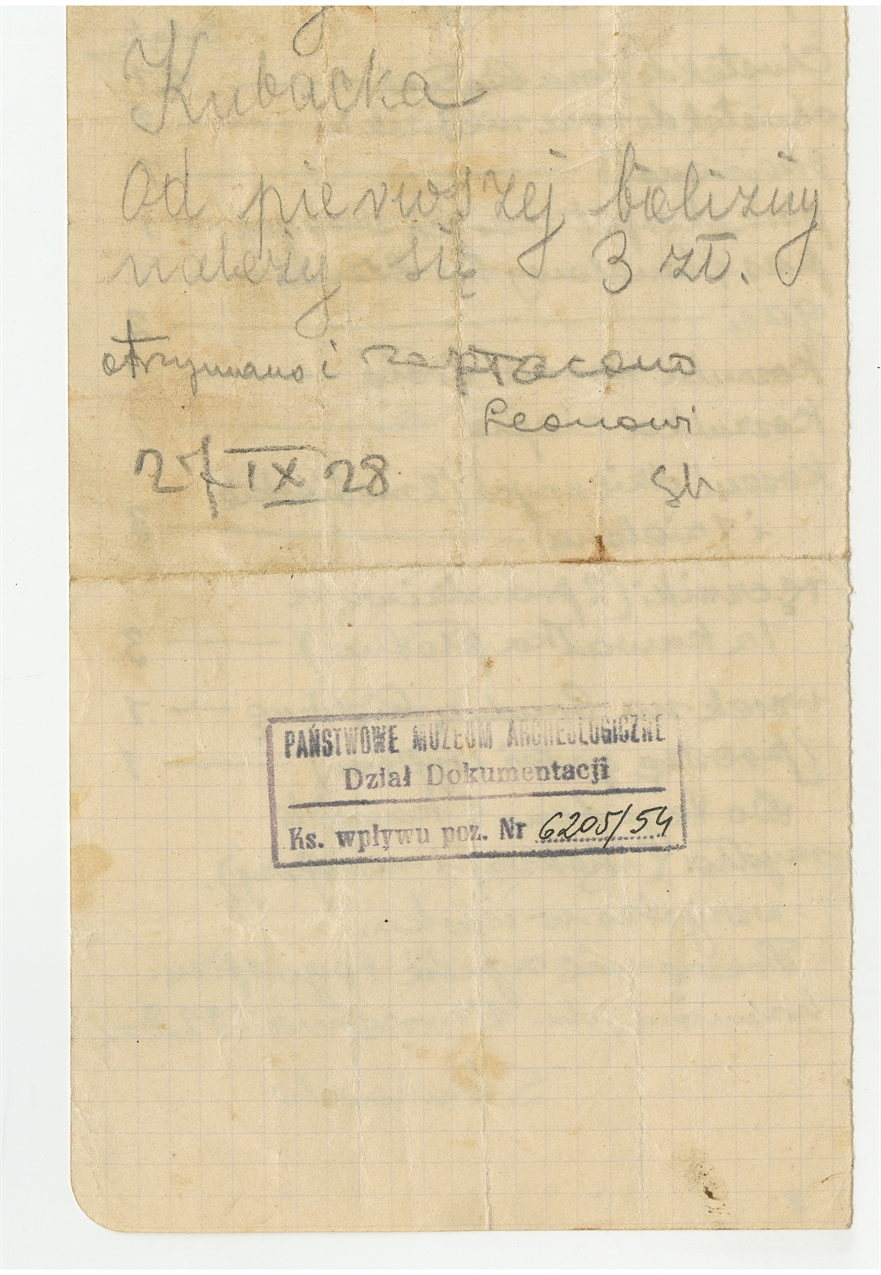 Kubacka
Od pierwszej bielizny
należy się 3 zł.
otrzymano i zapłacono
Leonowi
27 IX 28
PAŃSTWOWE MUZEUM ARCHEOLOGICZNE
Dział Dokumentacji
Ks. wpływu poz. Nr 6205/54